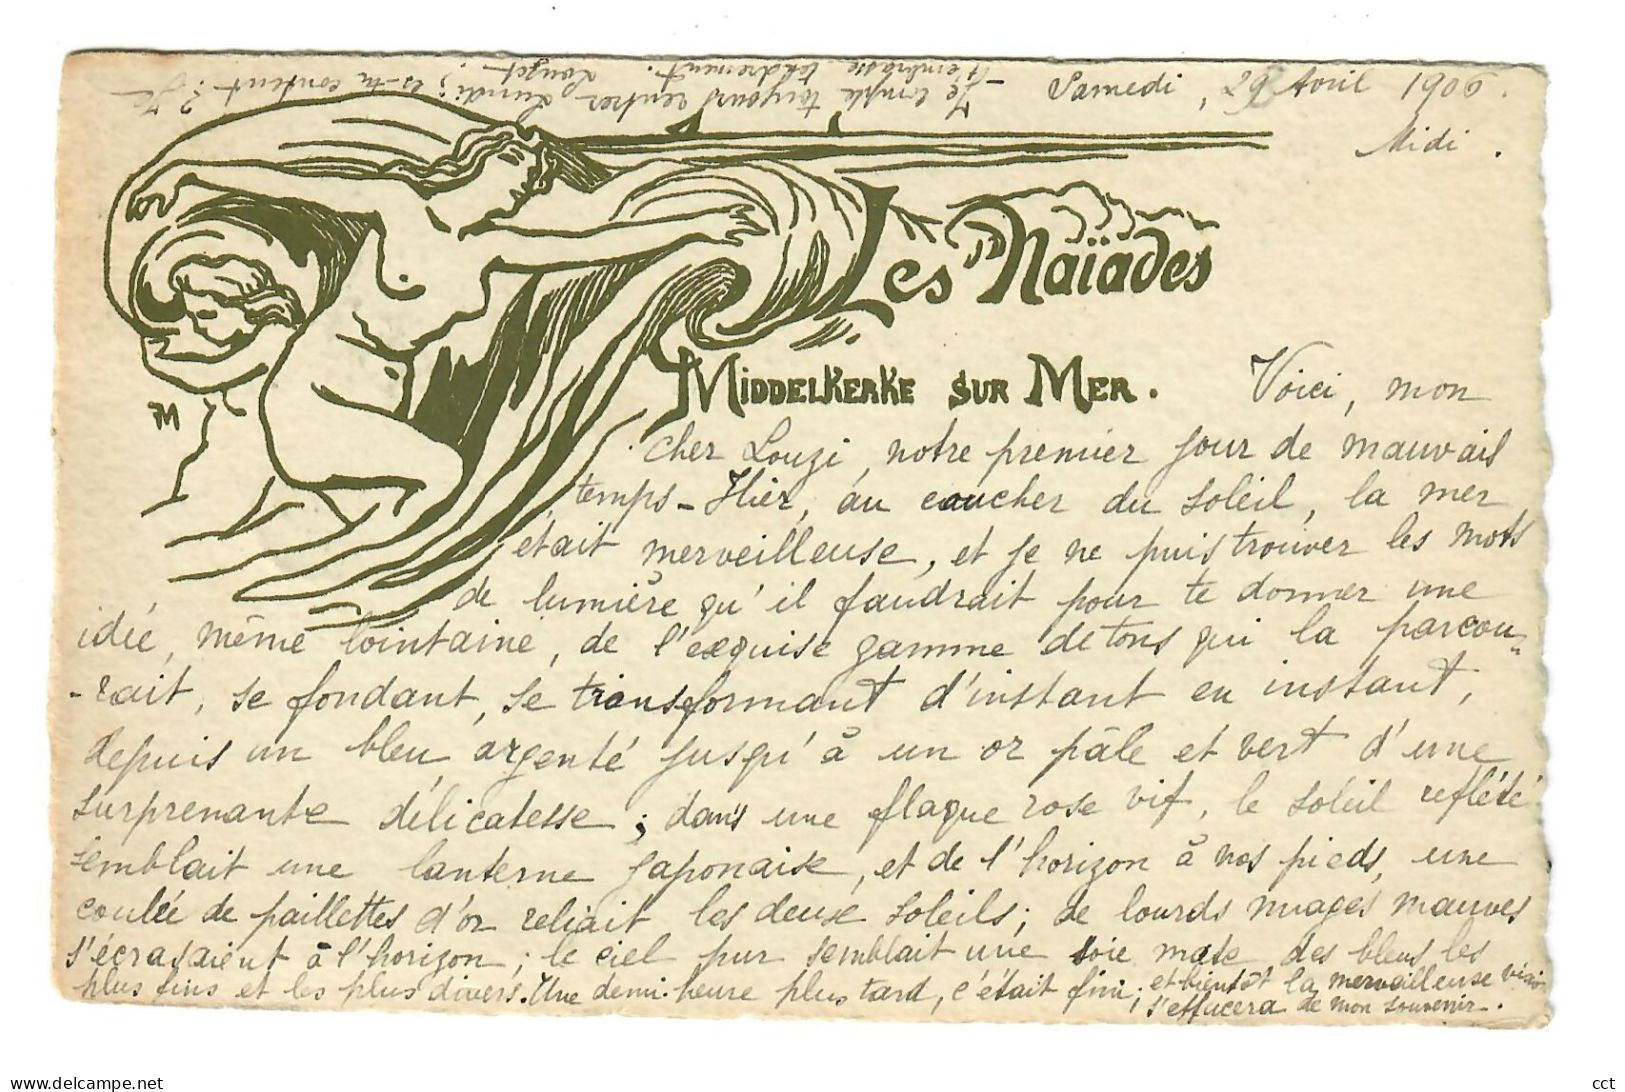 Samedi, 29 Avril 1906.
Midi.
Les Naïades
Middelkerke sur Mer.
JM
Voici, mon
cher Louzi, notre premier jour de mauvais
temps - Hier, au coucher du soleil, la mer
était merveilleuse, et je ne puis trouver les mots
de lumière qu'il faudrait pour te donner une
idée, même lointaine, de l'exquise gamme de tons qui la parcou-
-rait, se fondant, se transformant d'instant en instant,
depuis un bleu argenté jusqu'à un or pâle et vert d'une
surprenante délicatesse; dans une flaque rose vif, le soleil reflété
semblait une lanterne japonaise, et de l'horizon à nos pieds, une
coulée de paillettes d'or reliait les deux soleils; de lourds nuages mauves
s'écrasaient à l'horizon; le ciel pur semblait une soie mate des bleus les
plus fins et les plus divers. Une demi-heure plus tard, c'était fini; et bientôt la merveilleuse
s'effacera de mon souvenir.
Je compte toujours rentrer Lundi; es-tu content? Je
t'embrasse tendrement.
cct